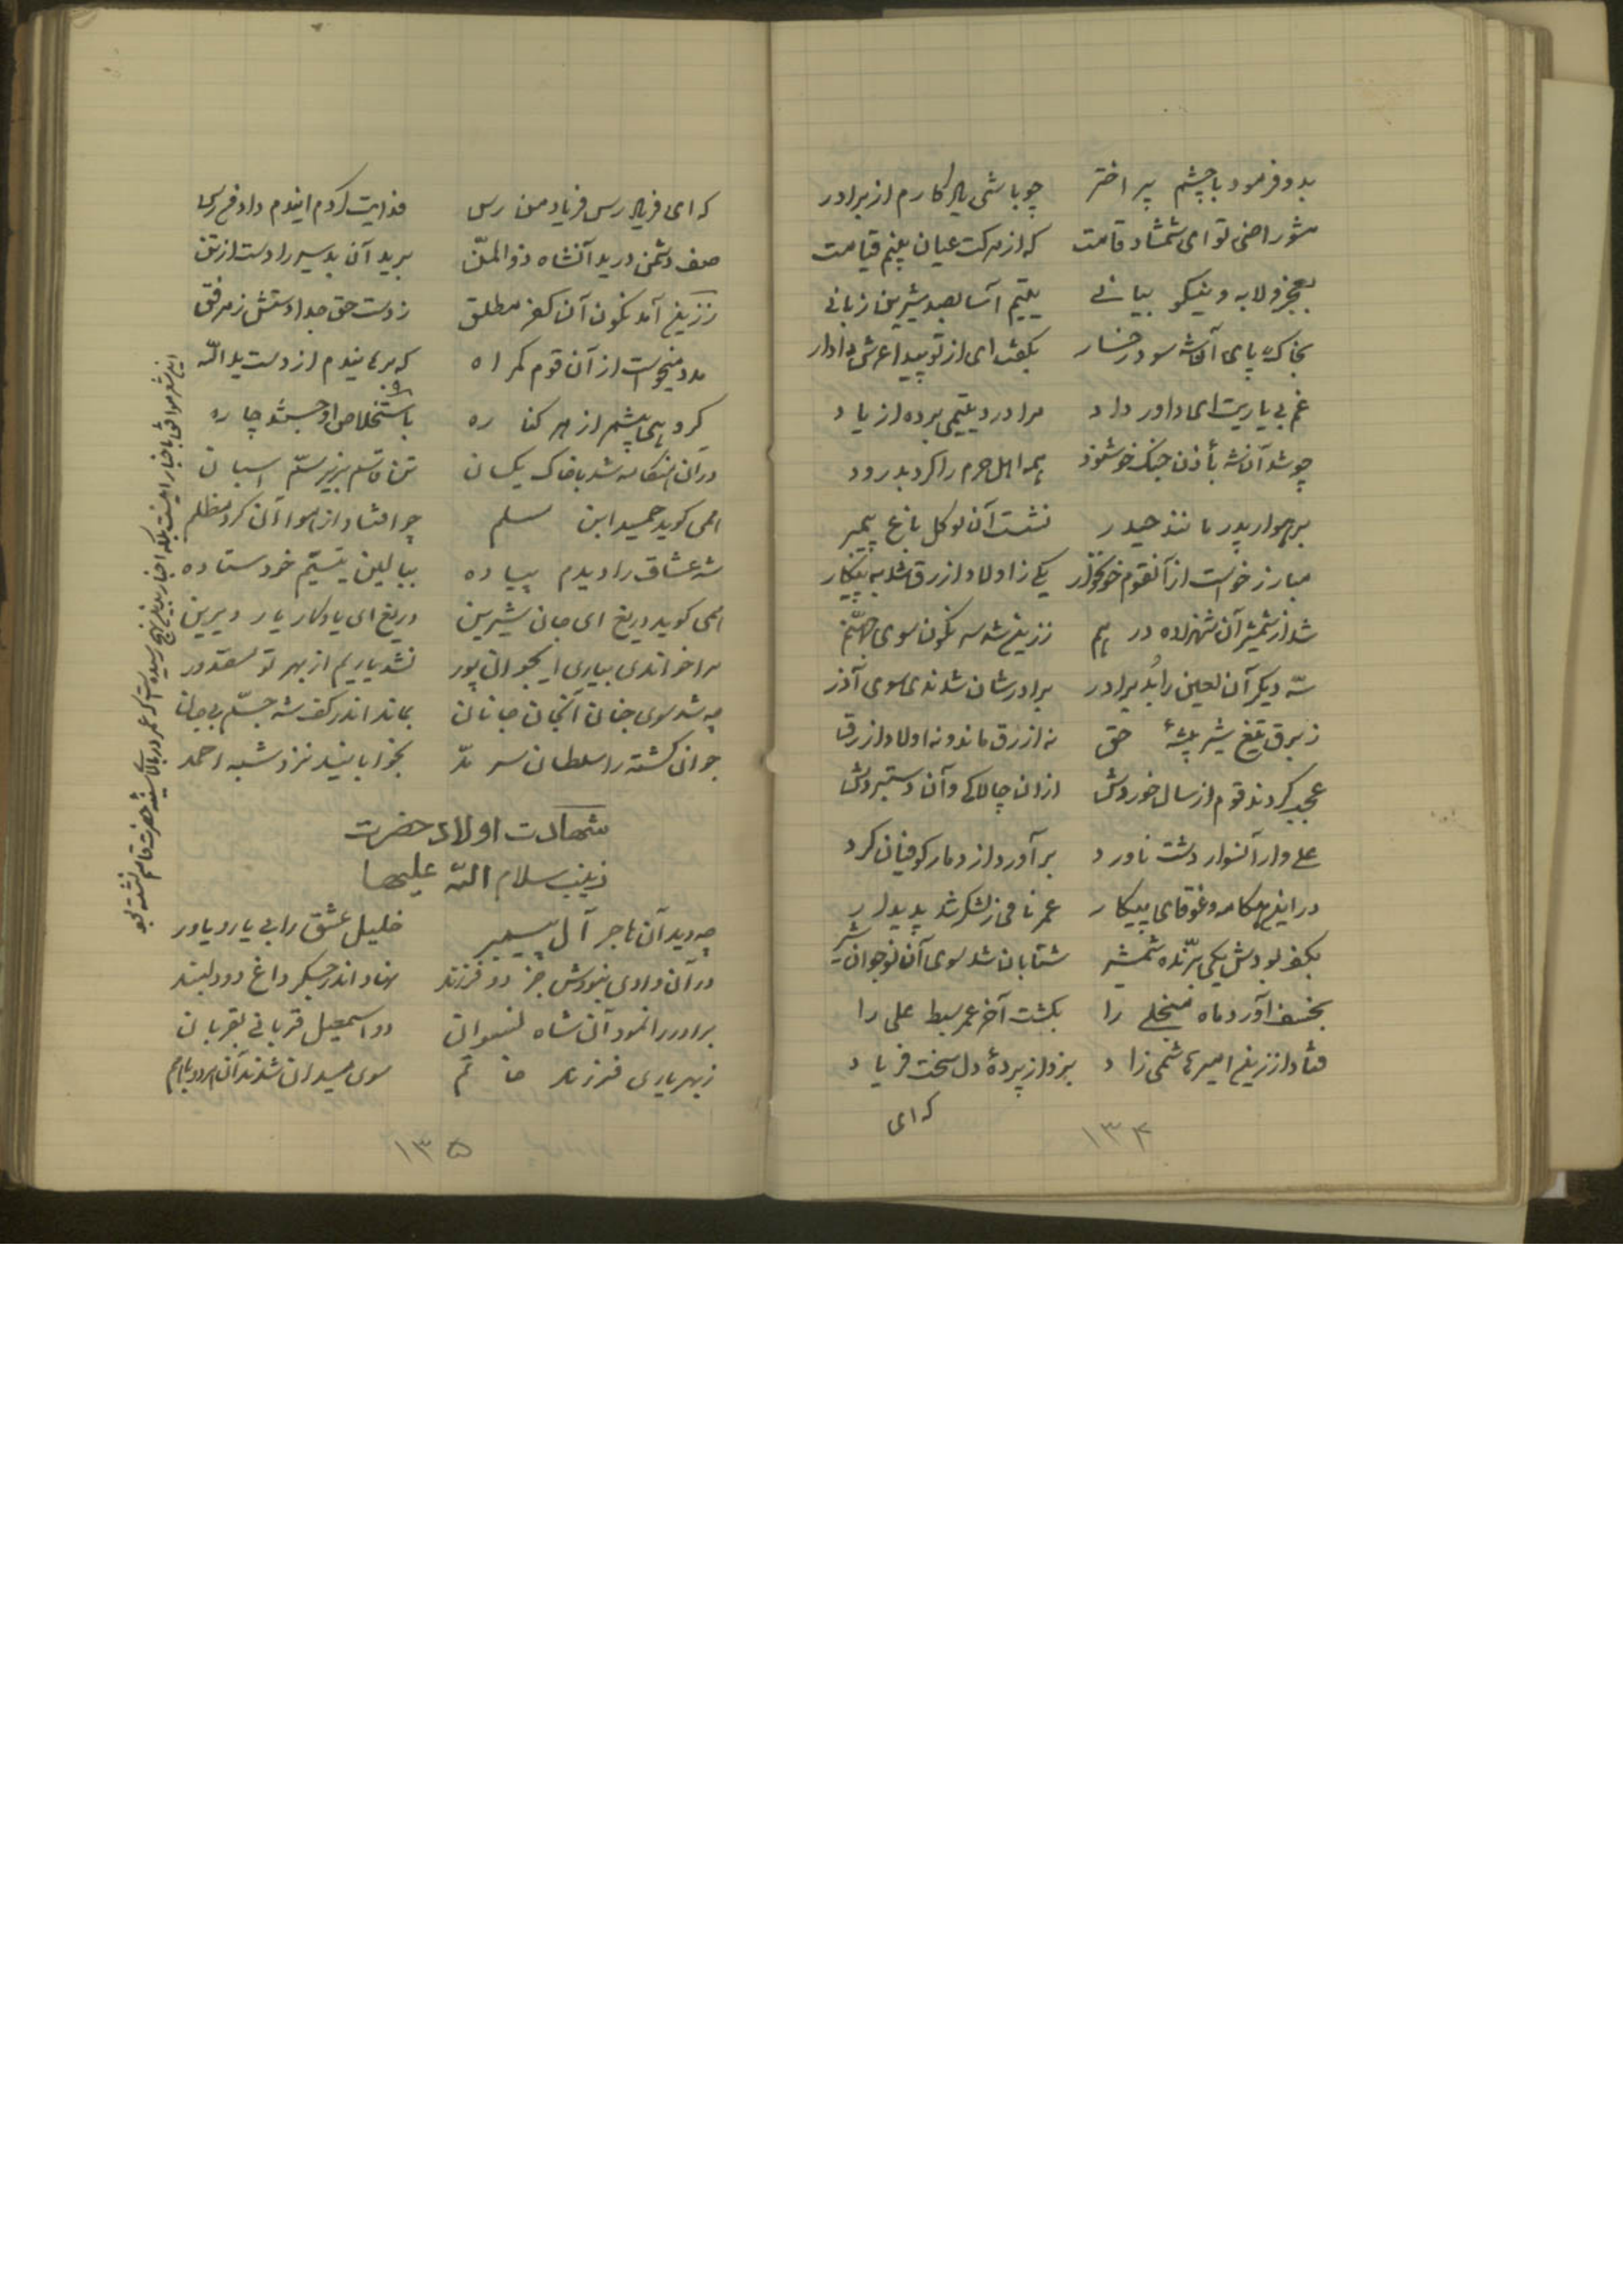 بدو فرمود با چشم پر اختر چو باشی یادگارم از برادر
مشو راضی تو ای شمشاد قامت که از مرکت عیان بینم قیامت
بعجز و لابه و نیکو بیانی یتیم آسا بصد شیرین زبانی
بخاک پای آن شه سود رخسار بگفت ای از تو پیدا عرش دادار
غم بی یاریت ای داور داد مرا درد یتیمی برده از یاد
چو شد آن شه بأذن جنک خوشنود همه اهل حرم را کرد بدرود
برهوار پدر مانند حیدر نشست آن نو کل باغ پیمبر
مبارز خواست از آنقوم خونخوار یکی ز اولاد ازرق شد به پیکار
شد از شمشیر آن شهزاده در هم ز زین شد سر نکون سوی جهنّم
سه دیکر آن لعین را بُد برادر برادرشان شدندی سوی آذر
ز برق تیغ شیر بیشهٔ حق نه ازرق ماند و نه اولاد ازرق
عجب کردند قوم از سال خوردش از آن چالاکی و آن دستبردش
علی وار آنسوار دشت ناورد بر آورد از دمار کوفیان کرد
در این هنکامه و غوقای پیکار عمر نامی ز لشکر شد پدیدار
بکف بودش یکی برّنده شمشیر شتابان شد سوی آن نوجوان شیر
بخسف آورد ماه منجلی را بکشت آخر عمر سبط علی را
فتاد از زین امیر هاشمی زاد بزد از پردهٔ دل سخت فریاد
که ای
۱۳۴
که ای فریاد رس فریاد من رس فدایت کردم ایندم داد
صف دشمن درید آنشاه ذوالمنّ برید آن بد سیر را دست از تن
ز زین آمد نکون آن کفر مطلق ز دست حق جدا دستش ز مرفق
مدد میخواست از آن قوم کمراه که برهانیدم از دست ید اللّه
کرد از هر کناره باستخلاص او جستند چاره
در آن هنکامه شد با خاک یکسان تن قاسم بزیر سمّ اسبان
همی کوید حمید ابن مسلم چو افتاد از هوا آن کرد مظلم
شه عشاق را دیدم پیاده ببالین یتیم خود ستاده
همی کوید دریغ ای جان شیرین دریغ ای یادکار یار دیرین
مرا خواندی بیاری ایجوان پور نشد یاریم از بهر تو مقدور
چه شد سوی جنان آنجان جانان بماند اندر کف شه جسم بیجان
جوان کشته را سلطان سرمد بخوابانید نزد شبه احمد
شهادت اولاد حضرت
زینب سلام اللّه علیها
چه دید آن هاجر آل پیمبر خلیل عشق را بی یار و یاور
در آن وادی نبودش جز دو فرزند نهاد اندر جکر داغ دو دلبند
برادر را نمود آن شاه نسوان دو اسمعیل قربانی بقربان
ز بهر یاری فرزند خاتم سوی میدان شدند آن هر دو با هم
۱۳۵